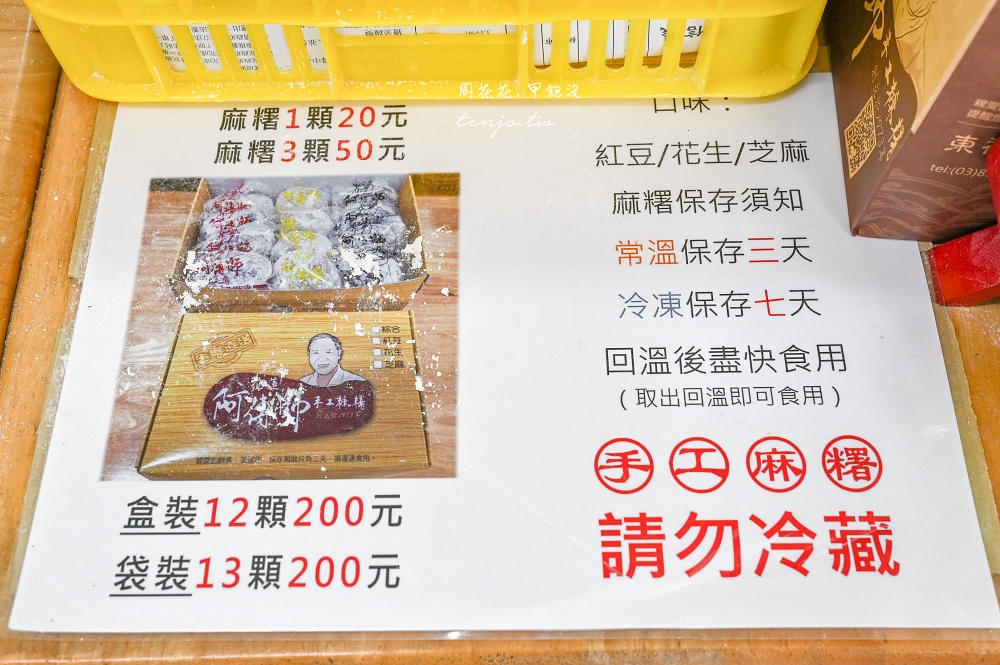 周花花，甲飽沒
tenjo.tw
麻糬1顆20元
麻糬3顆50元
盒裝12顆200元
袋裝13顆200元
口味：
紅豆/花生/芝麻
麻糬保存須知
常溫保存三天
冷凍保存七天
回溫後盡快食用
（取出回溫即可食用）
手工麻糬
請勿冷藏
綜合
紅豆
花生
芝麻
花蓮
手工麻糬
東
tel:(03)8